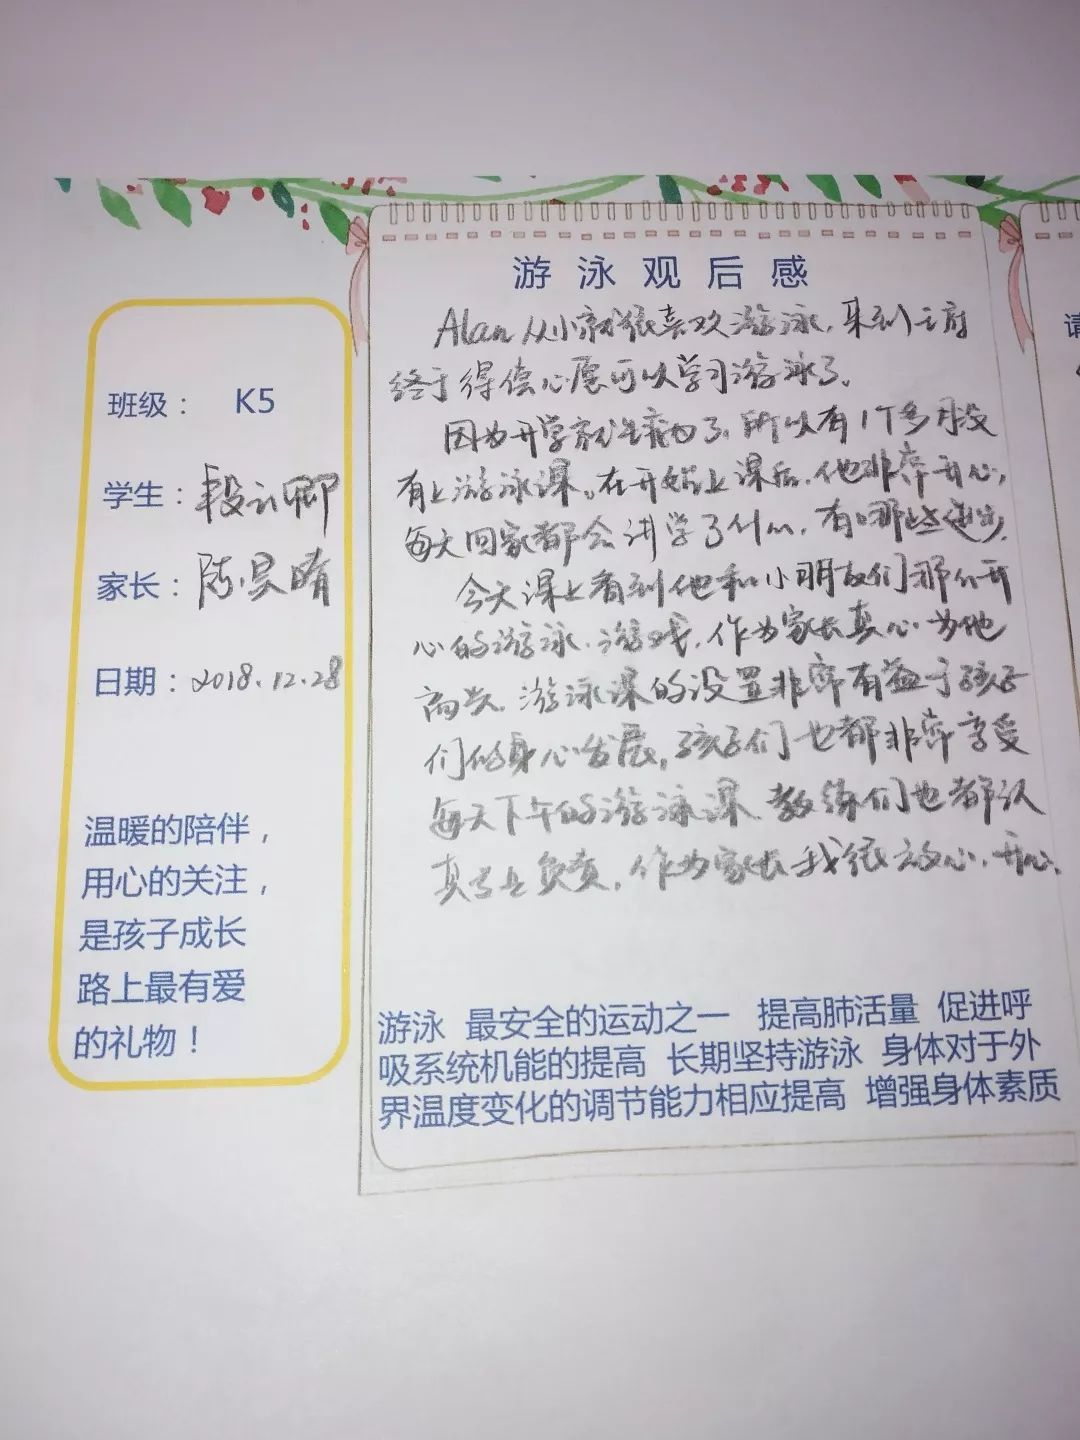 班级： K5
学生：段云卿
家长：陈昊
日期：2018.12.28
温暖的陪伴，
用心的关注，
是孩子成长
路上最有爱
的礼物！
游泳观后感
Alan从小就很喜欢游泳，来到天府
终于得偿心愿可以学习游泳了。
因为开学就生病了，所以有1个多月没
有上游泳课。在开始上课后，他非常开心，
每天回家都会讲学了什么，有哪些进步。
今天课上看到他和小朋友们那么开
心的游泳、游戏，作为家长真心为他
高兴。游泳课的设置非常有益于孩子
们的身心发展，孩子们也都非常享受
每天下午的游泳课，教练们也都认
真与且负责，作为家长我很放心、开心。
游泳 最安全的运动之一 提高肺活量 促进呼
吸系统机能的提高 长期坚持游泳 身体对于外
界温度变化的调节能力相应提高 增强身体素质
请